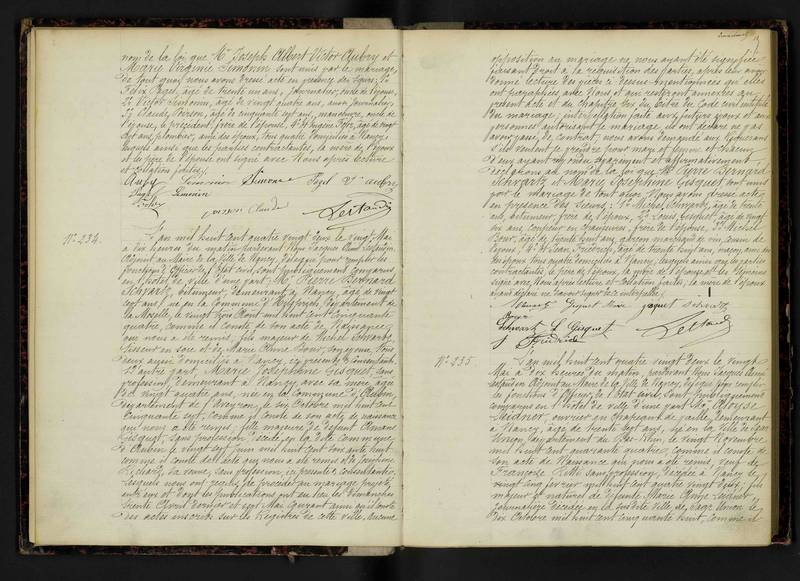 nom de la loi que Mr Joseph Albert Victor Aubry et
Marie Virginie Simonin sont unis par le mariage,
de tout quoi nous avons dressé acte en présence des sieurs: 1°
Félix Pagel, âgé de trente un ans, journalier, oncle de l'époux,
2° Victor Simonin, âgé de vingt quatre ans, aussi journalier,
3° Claude Voirson, âgé de cinquante sept ans, manœuvre, oncle de
l'épouse, le précédent frère de l'épouse, 4° Eugène âgé de vingt
sept ans, plombier, ami des époux, tous quatre domiciliés à Nancy,
lesquels ainsi que les parties contractantes, la mère de l'époux
et le père de l'épouse ont signé avec Nous après lecture
et
Aubry Simonin Simonin Pagel Vve aubry
Simonin
Claude
N° 234.
L'an mil huit cent quatre vingt deux le vingt Mai
à dix heures du matin, pardevant Nous Jacques
Adjoint au Maire de la Ville de Nancy, désigné pour remplir les
fonctions d'Officier de l'Etat civil, sont publiquement comparus
en l'hôtel de ville d'une part: Mr Pierre Bernard
Schvartz, bitumeur, demeurant à Nancy, âgé de vingt
sept ans, né en la Commune d' Département de
la Moselle, le vingt trois Août mil huit cent cinquante
quatre, comme il conste de son acte de Naissance
qui nous a été remis, fils majeur de Michel Schvartz,
tisseur en soie et de Marie Anne Bour, son épouse, tous
deux aussi domiciliés à Nancy, ici présents & consentants,
D'autre part, Marie Joséphine Gisquet, sans
profession, demeurant à Nancy avec sa mère, âgée
de vingt quatre ans, née en la Commune d'Aubin,
département de l'Aveyron, le six Octobre mil huit cent
cinquante sept, comme il conste de son acte de naissance
qui nous a été remis, fille majeure de défunt Amans
Gisquet, sans profession, décédé en la dite Commune
d'Aubin le vingt sept Juin mil huit cent soixante huit
comme il conste de l'acte qui nous a été remis et de Joséphine
sa veuve, sans profession, ici présente & consentante,
Lesquels nous ont requis de procéder au mariage projeté
entre eux et dont les publications ont eu lieu les Dimanches
trente Avril dernier et sept Mai courant ainsi qu'il conste
des actes inscrits sur les Registres de cette ville. Aucune
opposition au mariage ne nous ayant été signifiée
faisant droit à la réquisition des parties, après leur avoir
donné lecture des pièces ci dessus mentionnées qu'elles
ont paraphées avec Nous et qui resteront annexées au
présent acte et du chapitre Six du titre du Code civil intitulé
du mariage; interpellation faite aux futurs époux et aux
personnes autorisant le mariage, ils ont déclaré ne pas
avoir passé de contrat; nous avons demandé aux contractants
s'ils veulent se prendre pour mari et femme et chacun
d'eux ayant répondu séparément et affirmativement,
déclarons au nom de la loi que Mr Pierre Bernard
Schvartz et Marie Joséphine Gisquet sont unis
par le mariage de tout quoi Nous avons dressé acte
en présence des Sieurs: 1° Michel Schvartz, âgé de trente
ans, bitumeur, frère de l'époux, 2° Louis Gisquet, âgé de vingt
six ans, coupeur en chaussures, frère de l'épouse, 3° Michel
Bour, âgé de trente huit ans, garçon marchand de vin, cousin de
l'époux, 4° âgé de trente huit ans, maçon, ami
des époux, tous quatre domiciliés à Nancy, lesquels ainsi que les parties
contractantes, le père de l'époux, la mère de l'épouse et les témoins
signé avec Nous après lecture et collation faites, la mère de l'époux
ayant déclaré ne savoir signer de ce interpellée.
Schvartz Gisquet Marie gisquet schvartz
Schvartz L. Gisquet
N° 235.
L'an mil huit cent quatre vingt deux le vingt
Mai à dix heures du matin, pardevant Nous Jacques
Adjoint au Maire de la Ville de Nancy, désigné pour remplir
les fonctions d'Officier de l'Etat civil, sont publiquement
comparus en l'hôtel de ville d'une part: Mr Aloyse
Meidner, ouvrier en Chapeaux de paille, demeurant
à Nancy, âgé de trente sept ans, né en la Ville de
Union, Département du Bas-Rhin, le vingt Novembre
mil huit cent quarante quatre, comme il conste de
son acte de Naissance qui nous a été remis, veuf de
Françoise sans profession, décédée à Nancy le
vingt Janvier mil huit cent quatre vingt deux, fils
majeur et naturel de défunte Marie Anne
journalière décédée en la susdite Ville de le
dix Octobre mil huit cent cinquante huit, comme il